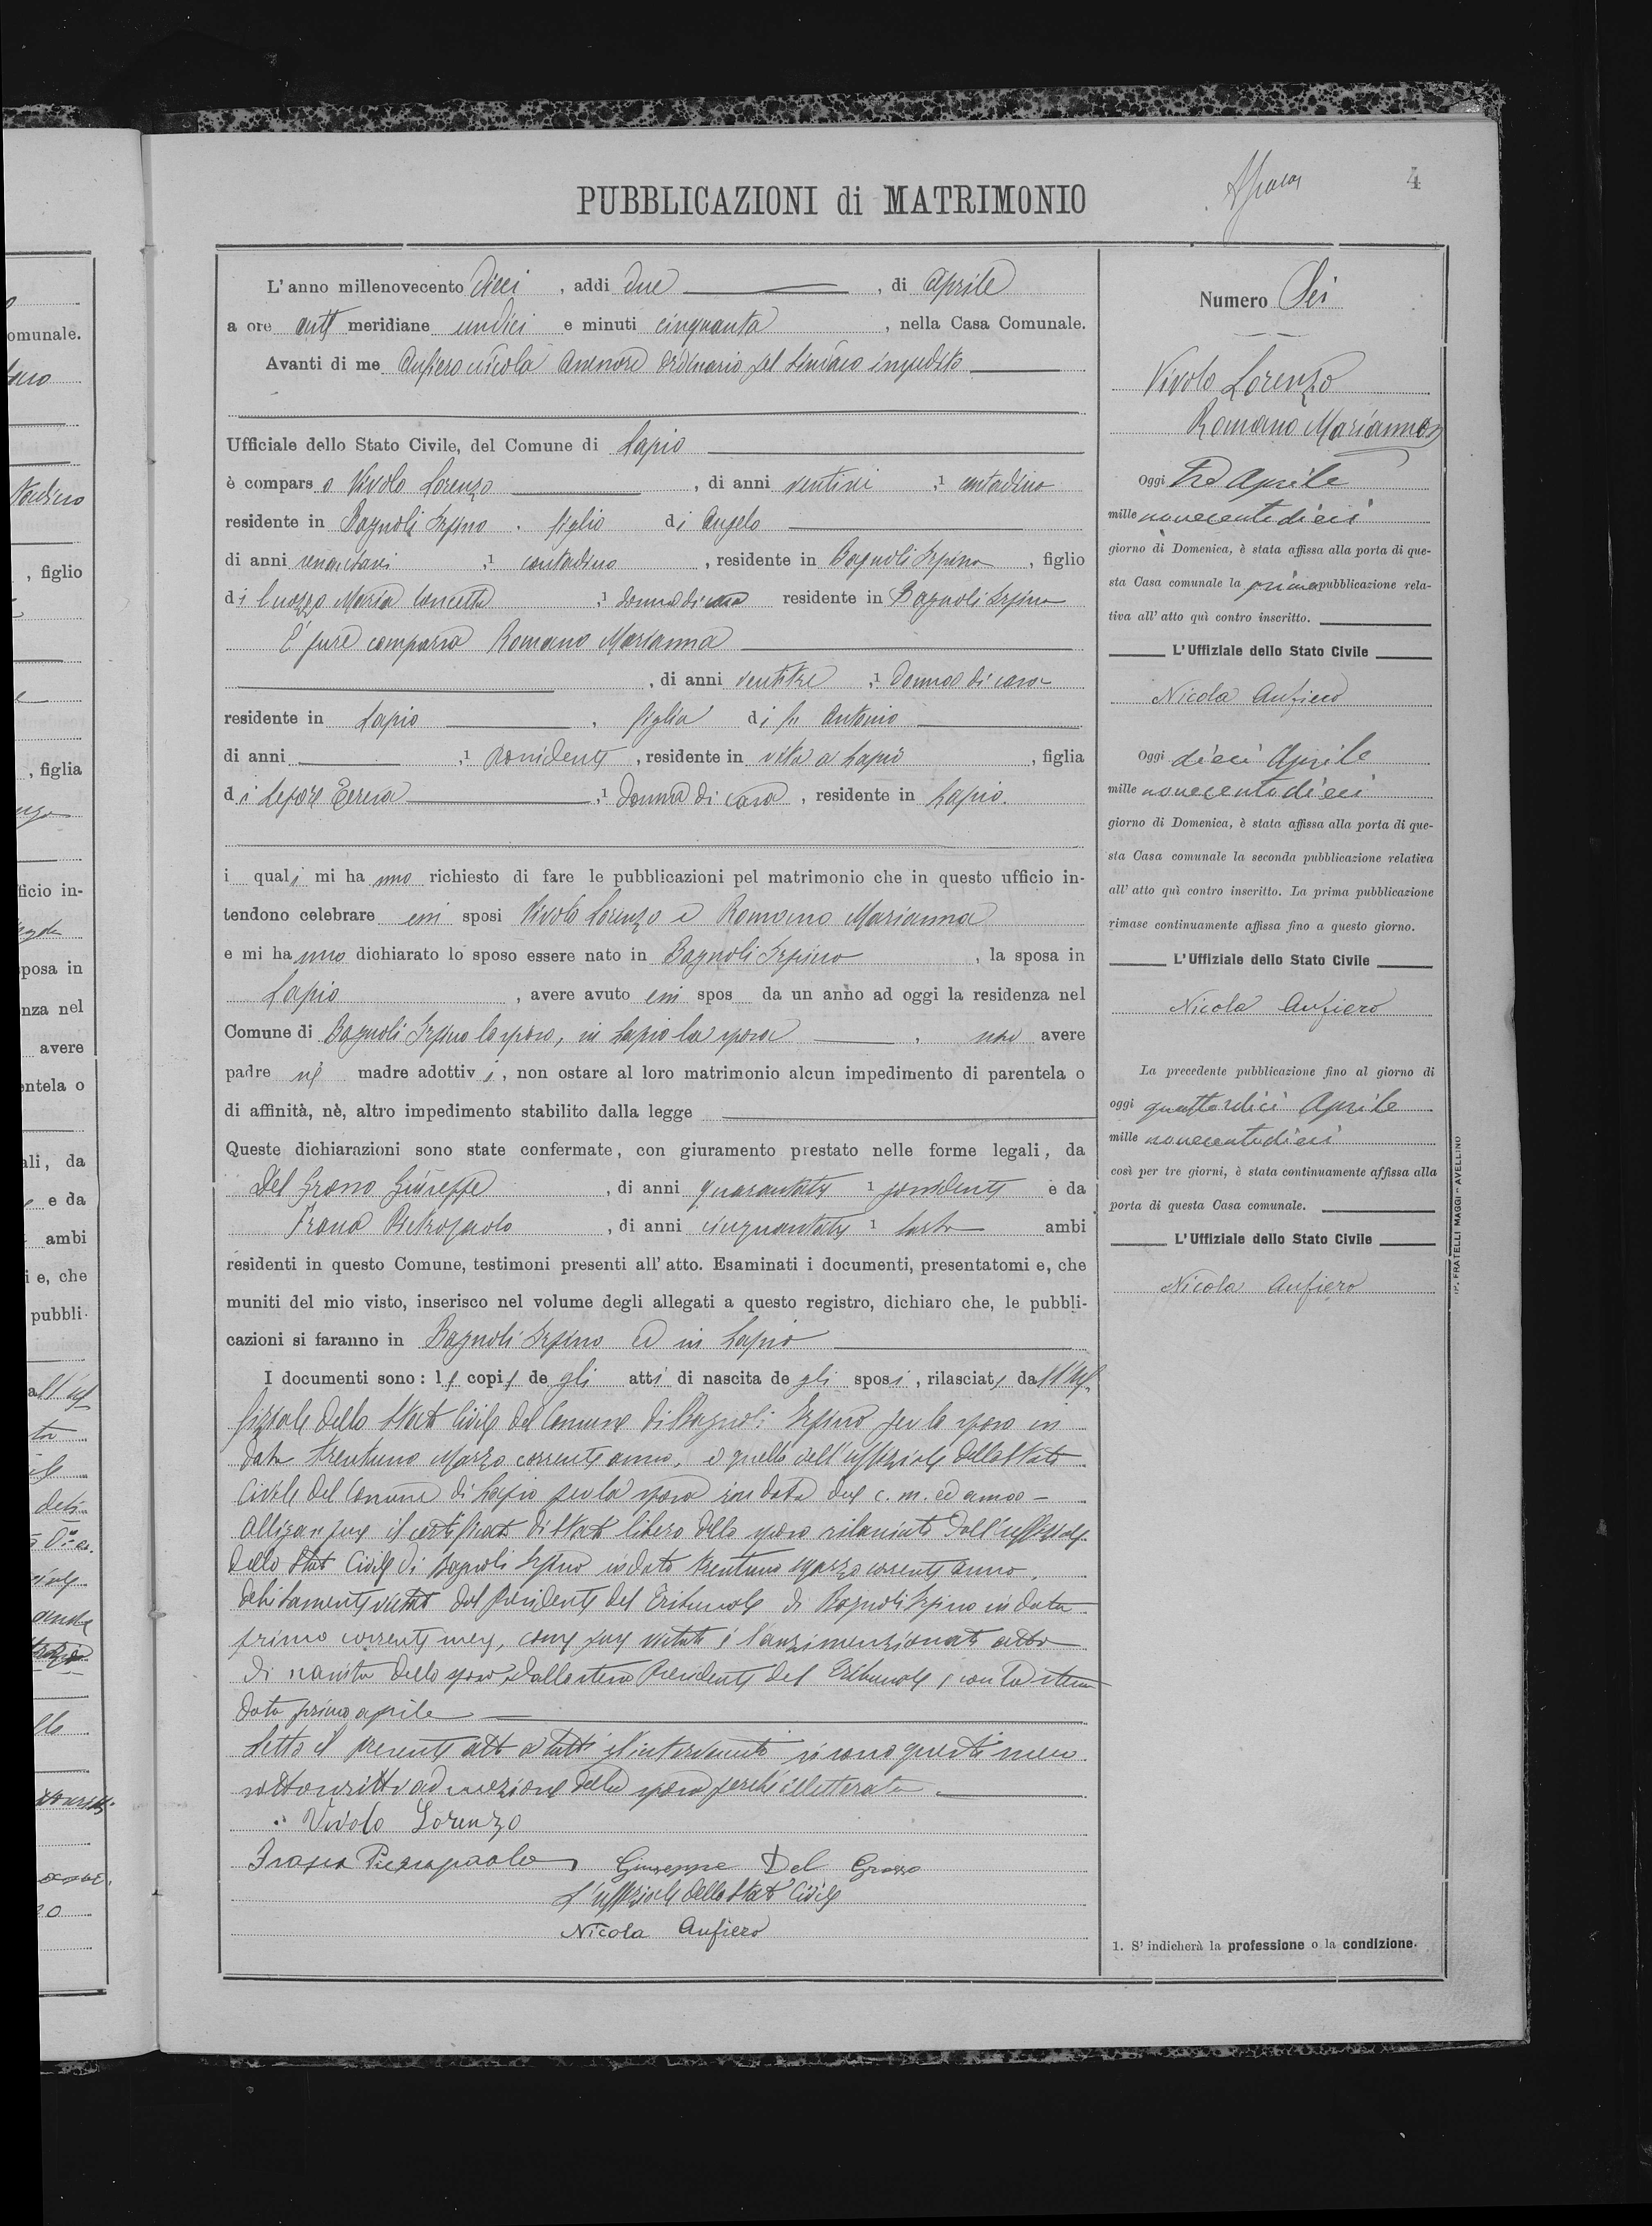 4
PUBBLICAZIONI di MATRIMONIO
L'anno millenovecento dieci, addi due, di Aprile
a ore anti meridiane undici e minuti cinquanta, nella Casa Comunale.
Avanti di me Aufiero Nicola Assessore Ordinario pel Sindaco impedito
Ufficiale dello Stato Civile, del Comune di Lapio
è comparso Vivolo Lorenzo, di anni ventisei 1 contadino
residente in Bagnoli Irpino, figlio di Angelo
di anni 1 contadino, residente in Bagnoli Irpino, figlio
di Maria Concetta 1 donna di casa residente in Bagnoli Irpino
È pure comparsa Romano Marianna
, di anni ventitre 1 donna di casa
residente in Lapio, figlia di fu Antonio
di anni 1 Possidente, residente in vita a Lapio, figlia
di Lepore Teresa 1 donna di casa, residente in Lapio.
i quali mi hanno richiesto di fare le pubblicazioni pel matrimonio che in questo ufficio in-
tendono celebrare essi sposi Vivolo Lorenzo e Romano Marianna
e mi hanno dichiarato lo sposo essere nato in Bagnoli Irpino, la sposa in
Lapio, avere avuto essi spos da un anno ad oggi la residenza nel
Comune di Bagnoli Irpino lo sposo, in Lapio la sposa, non avere
padre nè madre adottivi, non ostare al loro matrimonio alcun impedimento di parentela o
di affinità, nè, altro impedimento stabilito dalla legge
Queste dichiarazioni sono state confermate, con giuramento prestato nelle forme legali, da
Del Grosso Giuseppe, di anni quarantatre 1 possidente e da
Pietropaolo, di anni cinquantatre 1 sarto ambi
residenti in questo Comune, testimoni presenti all'atto. Esaminati i documenti, presentatomi e, che
muniti del mio visto, inserisco nel volume degli allegati a questo registro, dichiaro che, le pubbli-
cazioni si faranno in Bagnoli Irpino ed in Lapio
I documenti sono: le copie degli atti di nascita degli sposi, rilasciate dall'Uf-
fiziale dello Stato Civile del Comune di Bagnoli Irpino per lo sposo in
data trentuno Marzo corrente anno, e quello dell'uffiziale dello Stato
Civile del Comune di Lapio per la sposa in data due c. m. ed anno -
Allegasi pure il certificato di stato libero dello sposo rilasciato dall'uffiziale
dello Stato Civile di Bagnoli Irpino in data trentuno Marzo corrente anno,
debitamente vistato dal Presidente del Tribunale di Bagnoli Irpino in data
primo corrente mese, come pure vistato è l'anzimenzionato atto
di nascita dello sposo dallo stesso Presidente del Tribunale, con la stessa
data primo aprile
Letto il presente atto a tutti gl'intervenuti si sono questi meco
sottoscritti ad eccezione della sposa perchè illetterata.
Vivolo Lorenzo
Pietropaolo Giuseppe Del Grosso
L'uffiziale dello Stato Civile
Nicola Aufiero
Numero Sei
Vivolo Lorenzo
Romano Marianna
Oggi Tre Aprile
mille novecentodieci
giorno di Domenica, è stata affissa alla porta di que-
sta Casa comunale la prima pubblicazione rela-
tiva all'atto quì contro inscritto.
L'Uffiziale dello Stato Civile
Nicola Aufiero
Oggi dieci Aprile
mille novecentodieci
giorno di Domenica, è stata affissa alla porta di que-
sta Casa comunale la seconda pubblicazione relativa
all'atto quì contro inscritto. La prima pubblicazione
rimase continuamente affissa fino a questo giorno.
L'Uffiziale dello Stato Civile
Nicola Aufiero
La precedente pubblicazione fino al giorno di
oggi quattordici Aprile
mille novecentodieci
così per tre giorni, è stata continuamente affissa alla
porta di questa Casa comunale.
L'Uffiziale dello Stato Civile
Nicola Aufiero
1. S'indicherà la professione o la condizione.
FRATELLI MAGGI - AVELLINO
omunale.
, figlio
, figlia
ficio in-
sposa in
nza nel
avere
entela o
ali, da
e da
ambi
i e, che
pubbli-